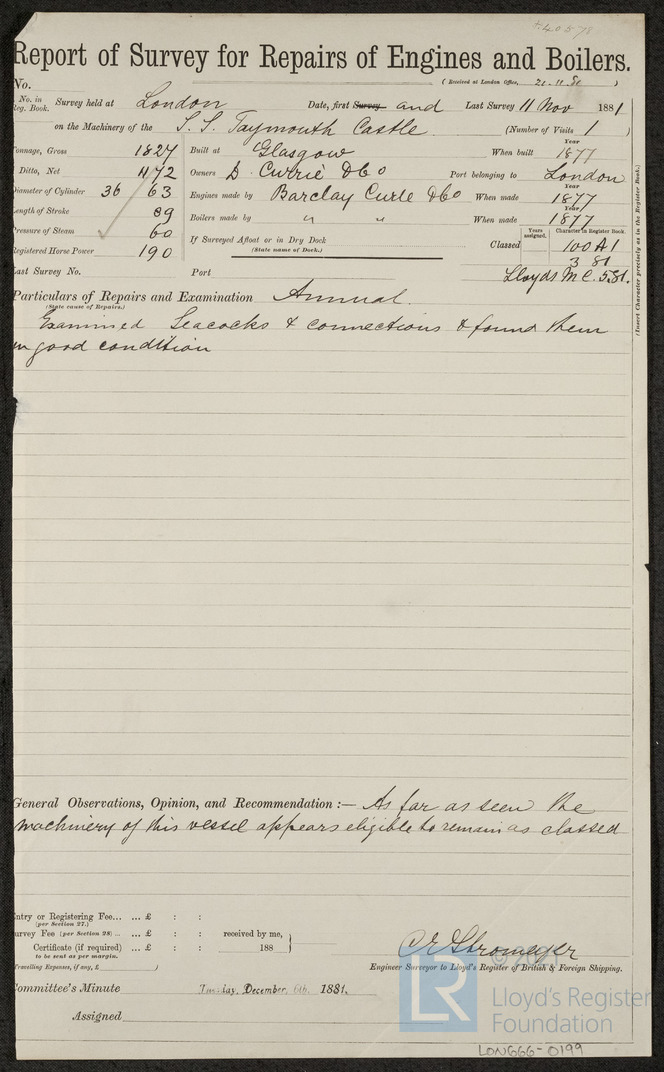 +40578
Report of Survey for Repairs of Engines and Boilers.
No. (Received at London Office, 21.11.81 )
No. in Reg. Book. Survey held at London Date, first Survey and Last Survey 11 Nov 1881
on the Machinery of the S. S. Taymouth Castle (Number of Visits 1 )
Tonnage, Gross 1827 Built at Glasgow When built Year 1877
Ditto, Net 1172 Owners D. Currie & Co Port belonging to London
Diameter of Cylinder 36 63 Engines made by Barclay Curle & Co When made Year 1877
Length of Stroke 39 Boilers made by " " When made Year 1877
Pressure of Steam 60 If Surveyed Afloat or in Dry Dock Classed Years assigned. Character in Register Book. 100 A1
Registered Horse Power 190 (State name of Dock.) 3 81
Last Survey No. Port Lloyds M C. 5.81.
(Insert Character precisely as in the Register Book.)
Particulars of Repairs and Examination Annual.
(State cause of Repairs.)
Examined Seacocks & connections & found them
in good condition
General Observations, Opinion, and Recommendation :— As far as seen the
machinery of this vessel appears eligible to remain as classed
Entry or Registering Fee... ... £ : :
(per Section 27.)
Survey Fee (per Section 28) ... ... £ : : received by me,
Certificate (if required) ... £ : : 188
to be sent as per margin.
(Travelling Expenses, if any, £ )
C E Stromeyer
© 2021
Engineer Surveyor to Lloyd's Register of British & Foreign Shipping.
Committee's Minute Tuesday, December, 6th, 1881.
Assigned
LR Lloyd's Register
Foundation
LON666-0199